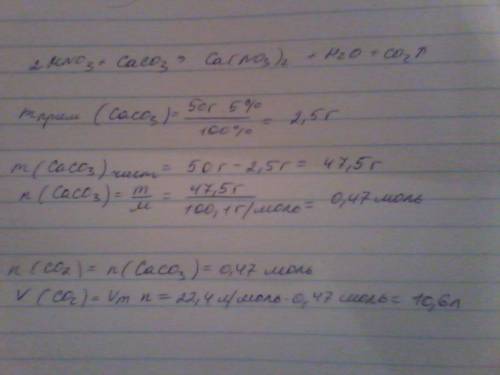 2HNO3 + CaCO3 = Ca(NO3)2 + H2O + CO2↑
mприм (CaCO3) = 50г 5% / 100% = 2,5г
m(CaCO3) чист = 50г - 2,5г = 47,5г
n(CaCO3) = m/M = 47,5г / 100,1г/моль = 0,47 моль
n(CO2) = n(CaCO3) = 0,47 моль
V(CO2) = Vm n = 22,4 л/моль · 0,47 моль = 10,6л